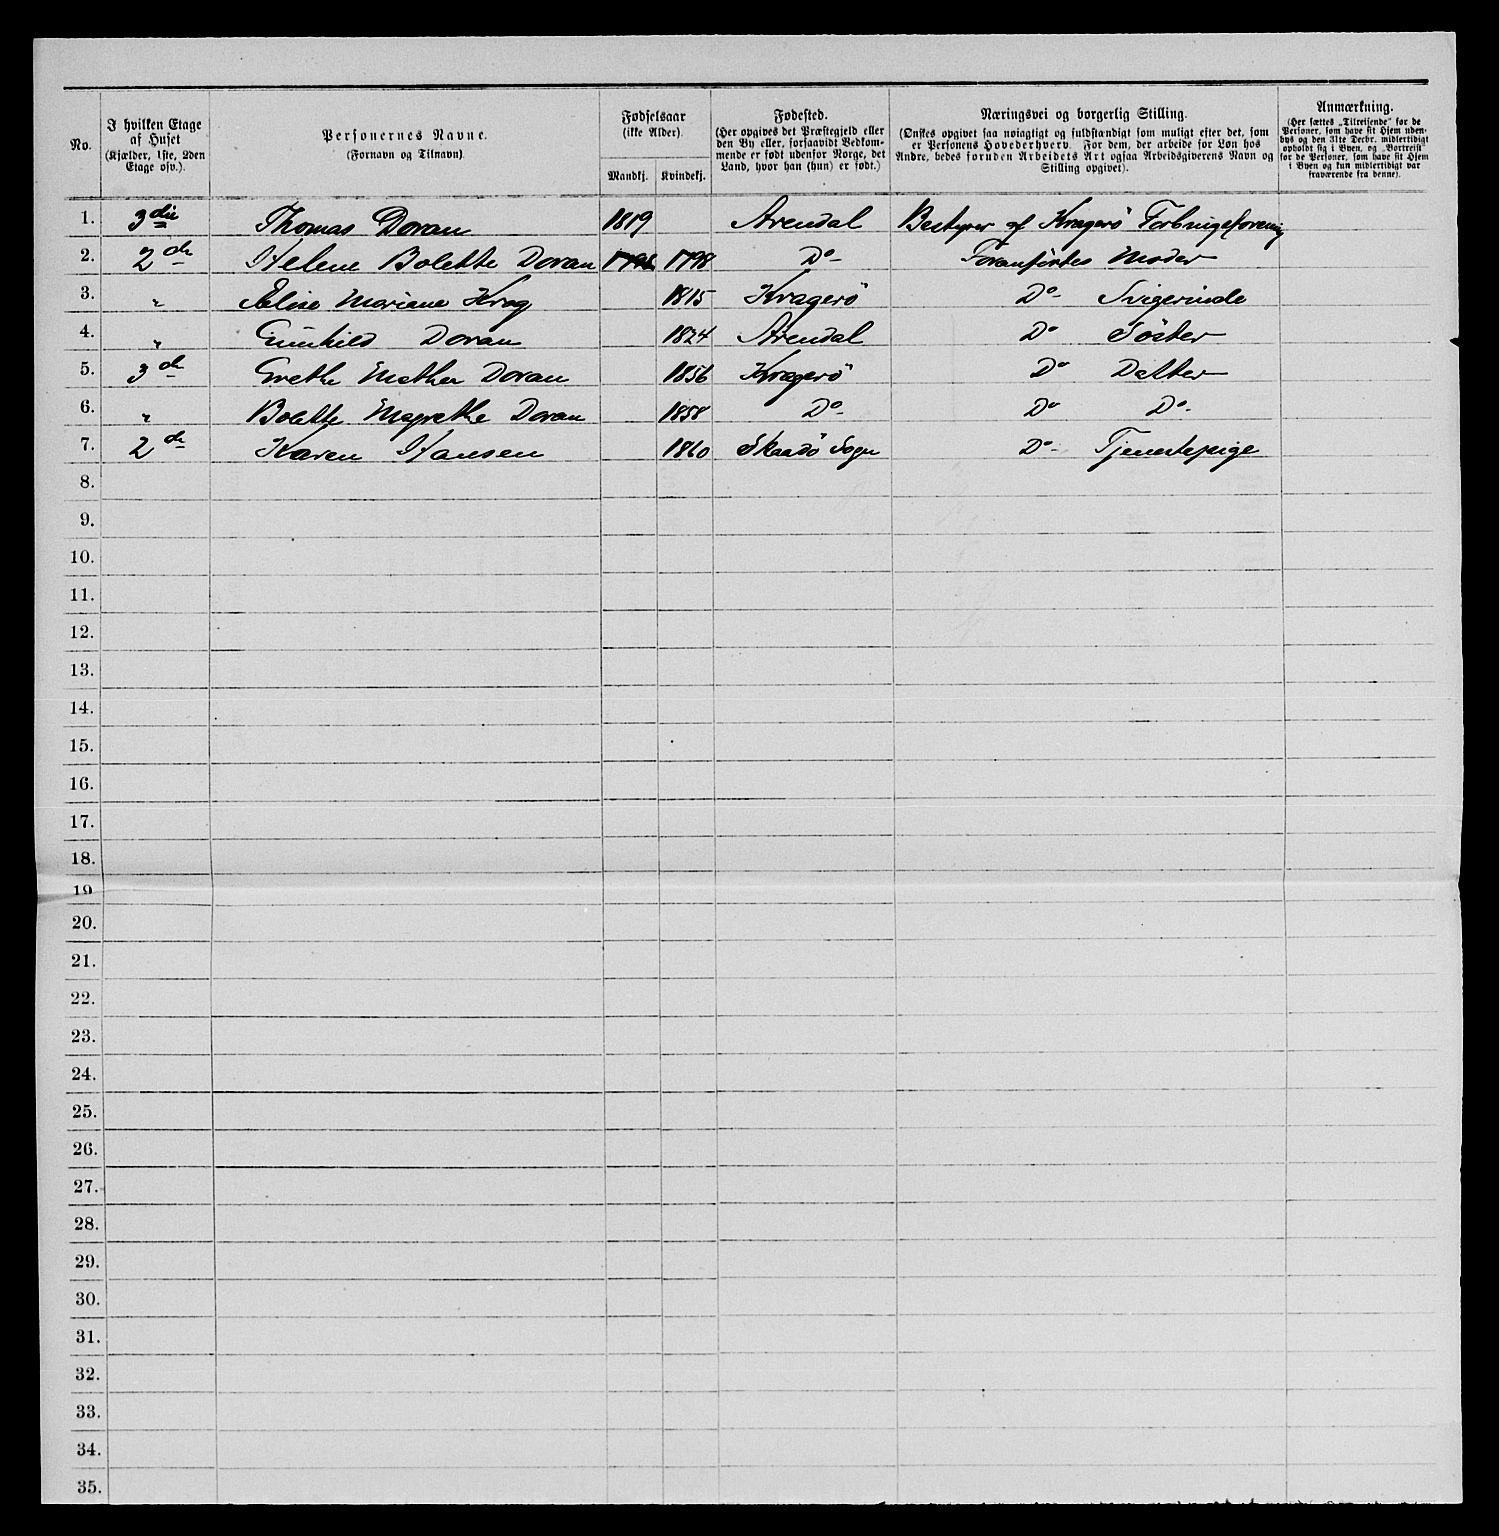 No.
I hvilken Etage af Huset (Kjælder, 1ste, 2den Etage osv.).
Personernes Navne. (Fornavn og Tilnavn)
Fødselsaar (ikke Alder).
Mandkj. Kvindekj.
Fødested. (Her opgives det Præstegjeld eller den By eller, forsaavidt Vedkommende er født udenfor Norge, det Land, hvor han (hun) er født.)
Næringsvei og borgerlig Stilling. (Ønskes opgivet saa nøiagtigt og fuldstændigt som muligt efter det, som er Personens Hovederhverv. For dem, der arbeide for Løn hos Andre, bedes foruden Arbeidets Art ogsaa Arbeidsgiverens Navn og Stilling opgivet).
Anmærkning. (Her sættes „Tilreisende" for de Personer, som have sit Hjem udenbys og den 31te Decbr. midlertidigt opholdt sig i Byen, og „Bortreist" for de Personer, som have sit Hjem i Byen og kun midlertidigt var fraværende fra denne).
1. 3die Thomas Doran 1819 Arendal Bestyrer af Kragerö Forbrugsforening
2. 2de Helene Bolette Doran 1798 1798 Do Foranförtes Moder
3. " Eline Mariane Krog 1815 Kragerö Do Svigerinde
4. " Gunhild Doran 1824 Arendal Do Söster
5. 3de Grethe Mathea Doran 1856 Kragerö Do Datter
6. " Bolette Magrethe Doran 1858 Do Do Do
7. 2de Karen Hansen 1860 Skaadö Sogn Do Tjenestepige
8.
9.
10.
11.
12.
13.
14.
15.
16.
17.
18.
19
20.
21.
22.
23.
24.
25.
26.
27.
28.
29.
30.
31.
32.
33.
34.
35.